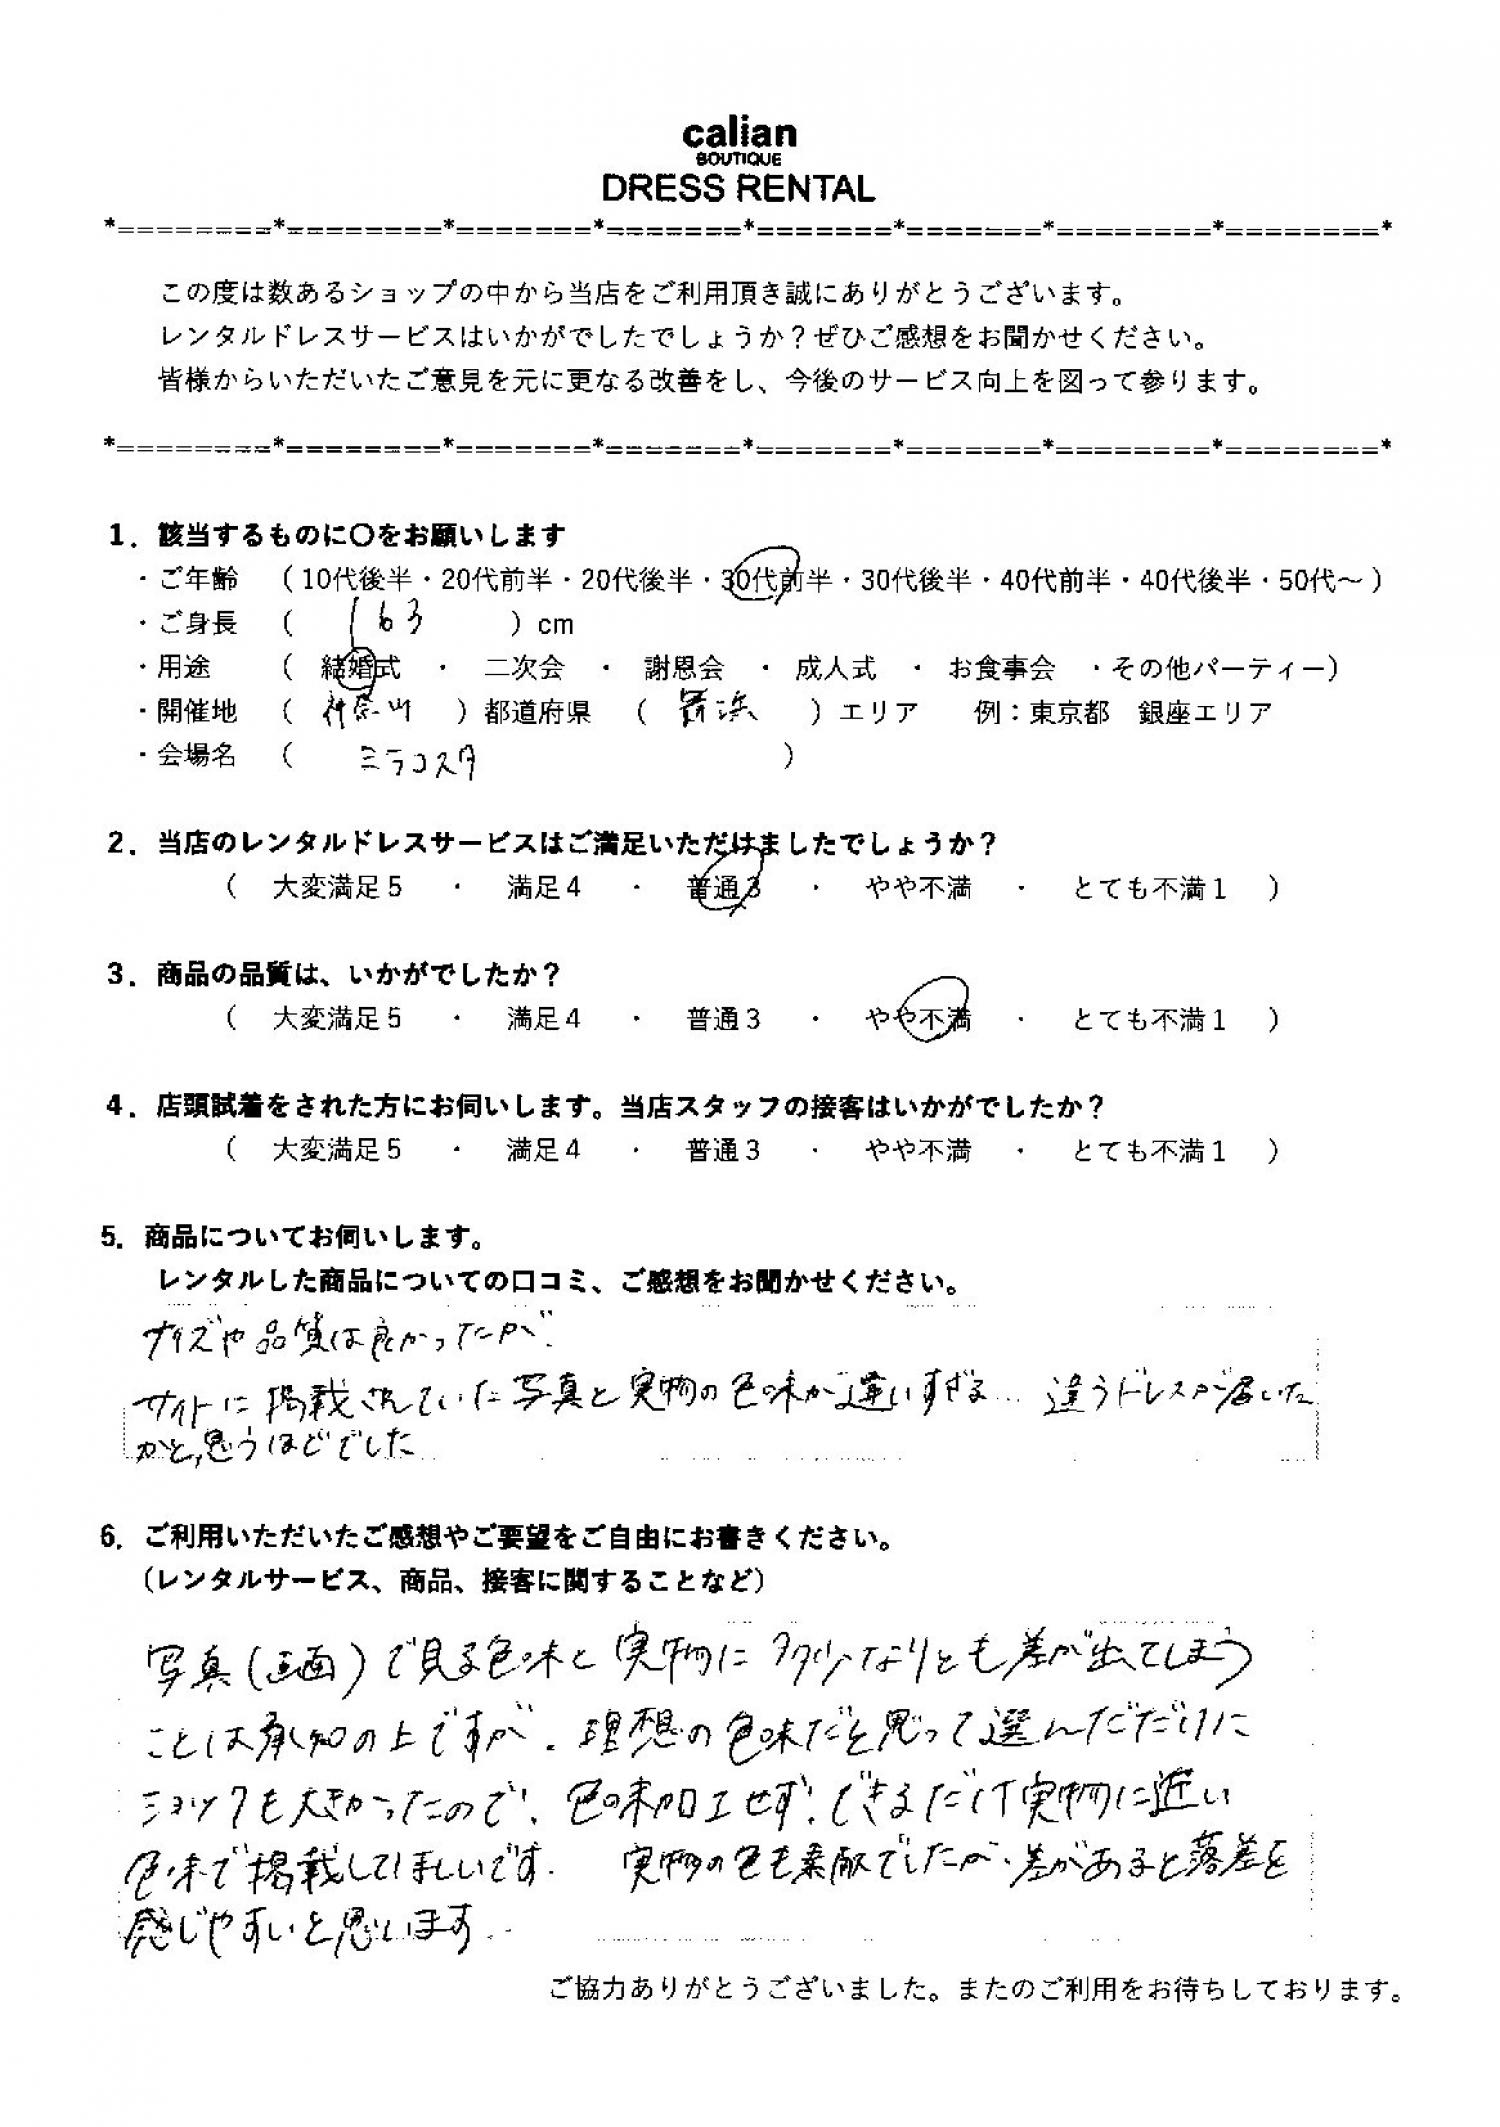 calian
BOUTIQUE
DRESS RENTAL
*========*========*=======*=======*=======*=======*========*========*
この度は数あるショップの中から当店をご利用頂き誠にありがとうございます。
レンタルドレスサービスはいかがでしたでしょうか？ぜひご感想をお聞かせください。
皆様からいただいたご意見を元に更なる改善をし、今後のサービス向上を図って参ります。
*========*========*=======*=======*=======*=======*========*========*
1．該当するものに〇をお願いします
・ご年齢 （10代後半・20代前半・20代後半・30代前半・30代後半・40代前半・40代後半・50代～）
・ご身長 （ 163 ）cm
・用途 （ 結婚式 ・ 二次会 ・ 謝恩会 ・ 成人式 ・ お食事会 ・その他パーティー）
・開催地 （ 神奈川 ）都道府県 （ 浜 ）エリア 例：東京都 銀座エリア
・会場名 （ ミラコスタ ）
2．当店のレンタルドレスサービスはご満足いただけましたでしょうか？
（ 大変満足５ ・ 満足４ ・ 普通３ ・ やや不満 ・ とても不満１ ）
3．商品の品質は、いかがでしたか？
（ 大変満足５ ・ 満足４ ・ 普通３ ・ やや不満 ・ とても不満１ ）
4．店頭試着をされた方にお伺いします。当店スタッフの接客はいかがでしたか？
（ 大変満足５ ・ 満足４ ・ 普通３ ・ やや不満 ・ とても不満１ ）
5．商品についてお伺いします。
レンタルした商品についての口コミ、ご感想をお聞かせください。
サイズや品質は良かったが、
サイトに掲載されていた写真と実物の色味が違いすぎる… 違うドレスが届いた
かと思うほどでした
6．ご利用いただいたご感想やご要望をご自由にお書きください。
（レンタルサービス、商品、接客に関することなど）
写真(画面)で見る色味と実物に多少なりとも差が出てしまう
ことは承知の上ですが、理想の色味だと思って選んだだけに
ショックも大きかったので、色味加工せず、できるだけ実物に近い
色味で掲載してほしいです。 実物の色も素敵でしたが、差があると落差を
感じやすいと思います。
ご協力ありがとうございました。またのご利用をお待ちしております。